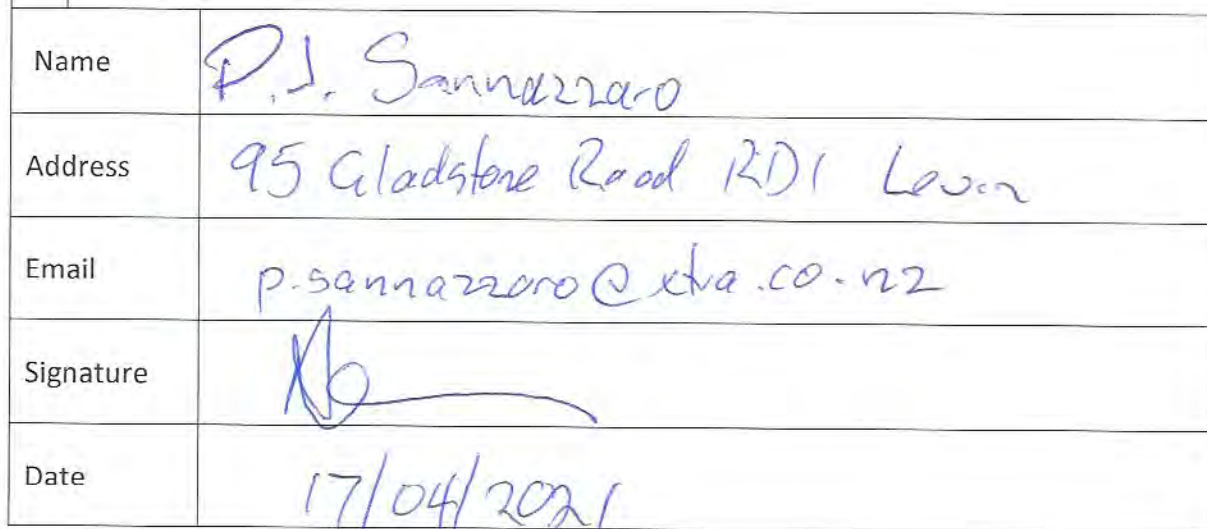 Name P.J. Sannazzaro
Address 95 Gladstone Road RD1 Levin
Email p.sannazzaro@xtra.co.nz
Signature
Date 17/04/2021